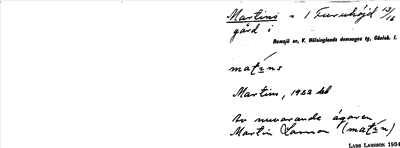 Martins = 1 Furuhöjd 13/16
gård i
Ramsjö sn, V. Hälsinglands domsagas tg, Gävleb. l.
mat₂ns
Martins, 1932 kb
Av nuvarande ägaren
Martin Larsson (mat₂n)
LARS LARSSON 1934